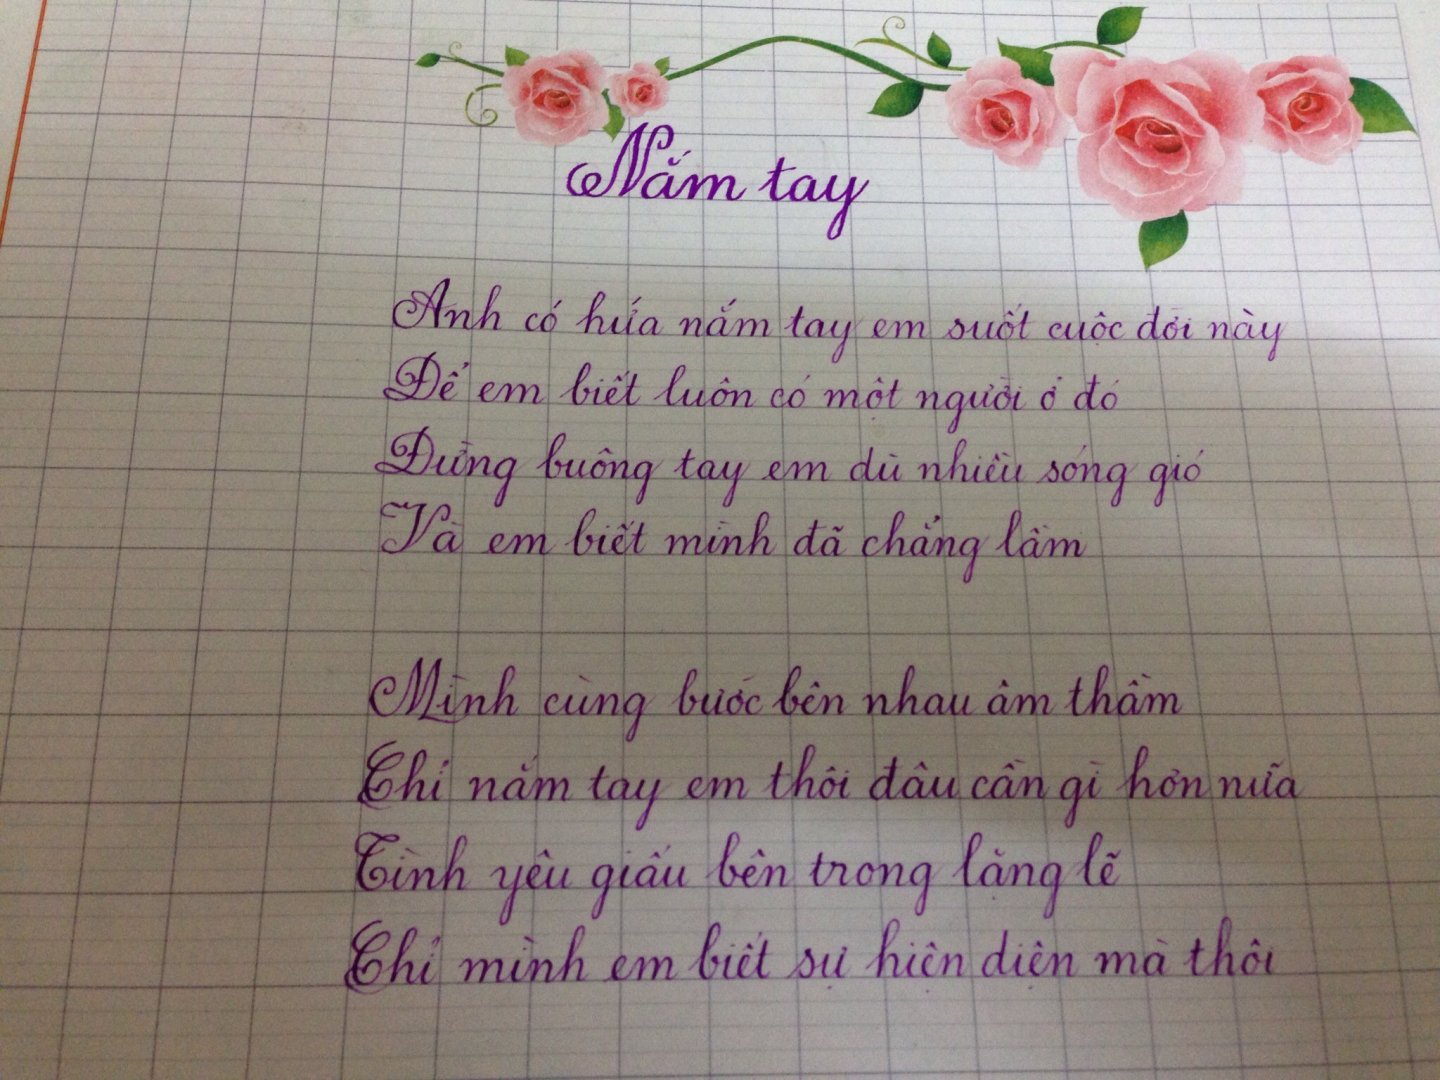 Nắm tay
Anh có hứa nắm tay em suốt cuộc đời này
Để em biết luôn có một người ở đó
Đừng buông tay em dù nhiều sóng gió
Và em biết mình đã chẳng lầm
Mình cùng bước bên nhau âm thầm
Chỉ nắm tay em thôi đâu cần gì hơn nữa
Tình yêu giấu bên trong lặng lẽ
Chỉ mình em biết sự hiện diện mà thôi